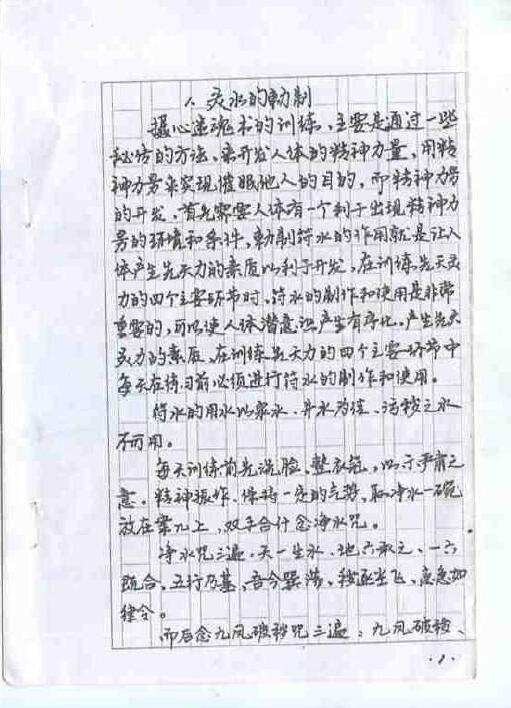 1、灵水的勅制
摄心迷魂术的训练，主要是通过一些
秘传的方法，来开发人体的精神力量，用精
神力量来实现催眠他人的目的，而精神力量
的开发，首先需要人体有一个利于出现精神力
量的环境和条件，勅制符水的作用就是让人
体产生先天力的素质以利于开发，在训练先天灵
力的四个主要环节时，符水的制作和使用是非常
重要的，可以使人体潜意识产生有序化，产生先天
灵力的素质，在训练先天力的四个主要环节中
每天在练习前必须进行符水的制作和使用。
符水的用水以泉水、井水为佳、污秽之水
不可用。
每天训练前先洗脸、整衣冠，以示严肃之
意，精神振作，保持一定的气势，取净水一碗
放在案几上，双手合什念净水咒。
净水咒三遍：天一生水，地六承之，一六
既合，五行乃基，吾今噀荡，秽逐尘飞，急急如
律令。
而后念九凤破秽咒三遍：九凤破秽、
·1·